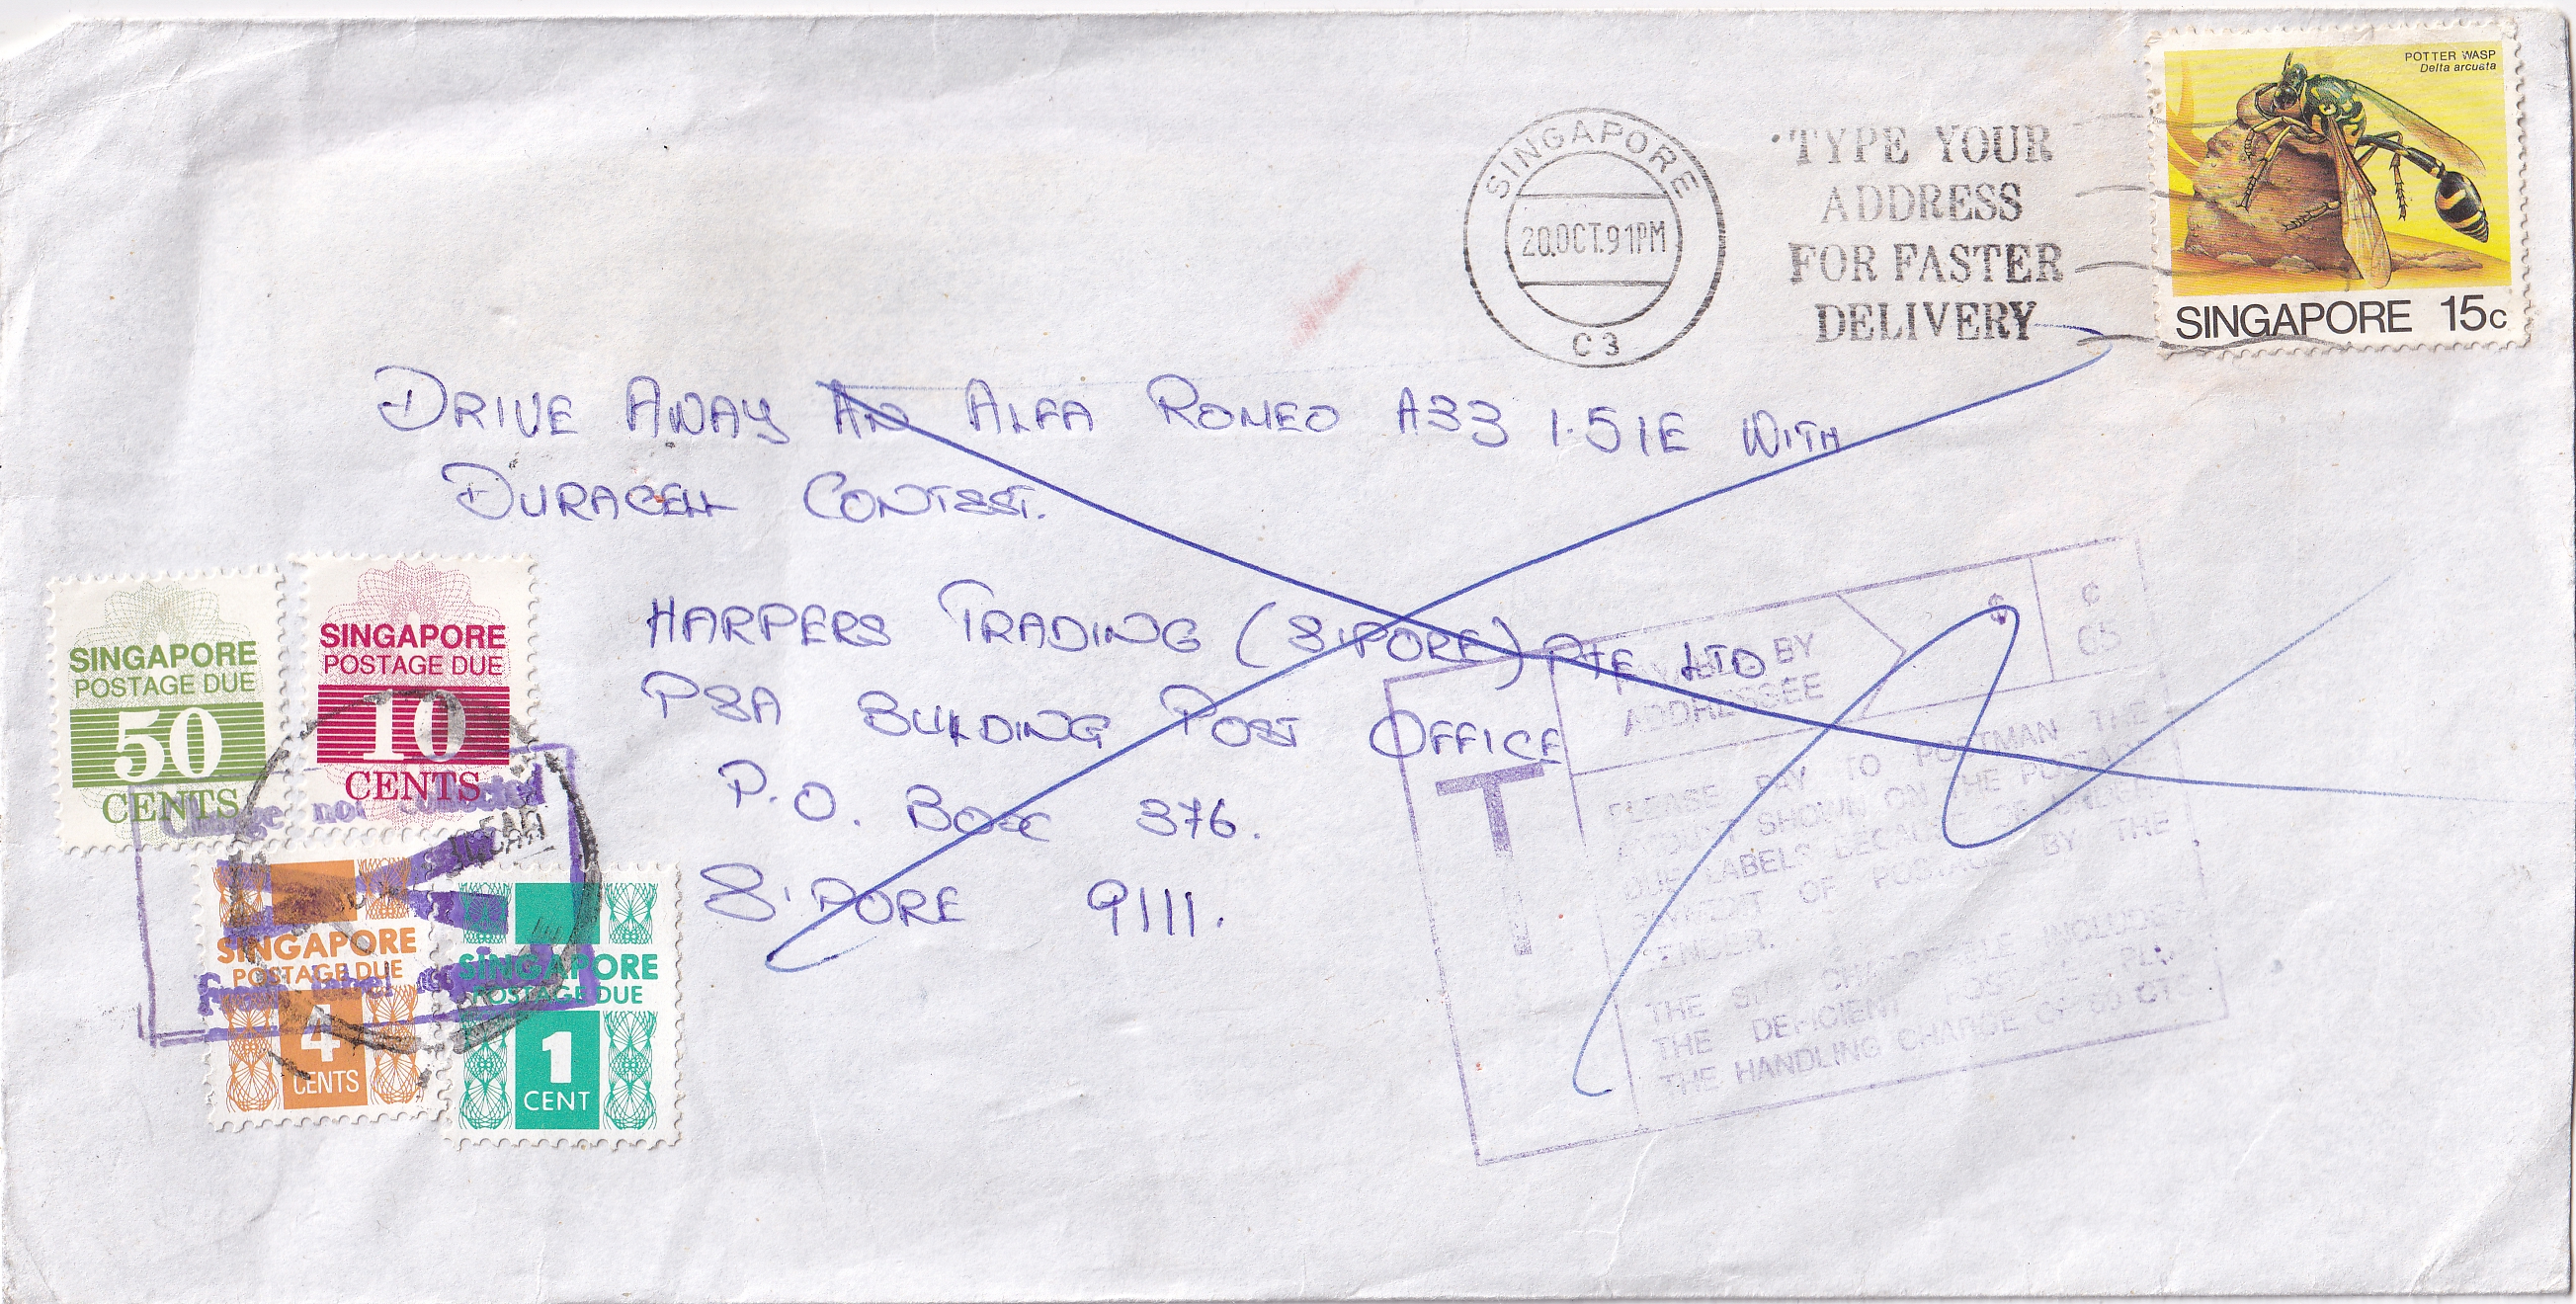 POTTER WASP
Delta arcuata
SINGAPORE 15c
SINGAPORE
20.OCT.91PM
C3
TYPE YOUR
ADDRESS
FOR FASTER
DELIVERY
DRIVE AWAY AN ALFA ROMEO A33 1.5IE WITH
DURACELL CONTEST.
HARPERS TRADING (S'PORE) PTE LTD
PSA BUILDING POST OFFICE
P.O. BOX 376.
S'PORE 9111.
SINGAPORE
POSTAGE DUE
50
CENTS
SINGAPORE
POSTAGE DUE
10
CENTS
SINGAPORE
POSTAGE DUE
4
CENTS
SINGAPORE
POSTAGE DUE
1
CENT
not collected
from
T
BY
ADDRESSEE
$ ¢
65
PLEASE PAY TO POSTMAN THE
SHOWN ON THE POSTAGE
DUE LABELS
OF POSTAGE BY THE
SENDER.
THE SUM CHARGEABLE INCLUDES
THE DEFICIENT POSTAGE PLUS
THE HANDLING CHARGE OF 60 CTS